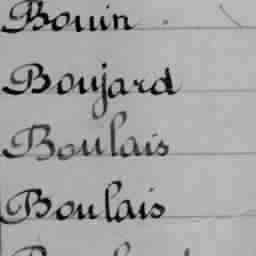 Bouin
Boujard
Boulais
Boulais